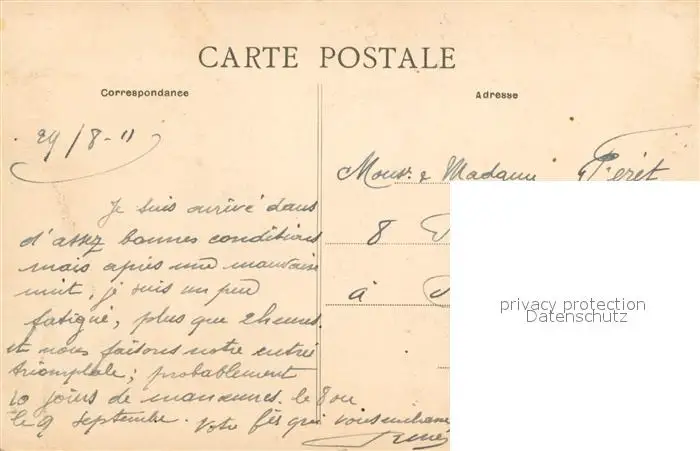 CARTE POSTALE
Correspondance
Adresse
29/8-11
Mousr & Madame Féret
8
à
Je suis arrivé dans
d'assez bonnes conditions
mais après une mauvaise
nuit, je suis un peu
fatigué, plus que 2 heures
et nous faisons notre entrée
triomphale; probablement
10 jours de manœuvres. le 8 ou
le 9 septembre. Votre fils qui vous
privacy protection
Datenschutz